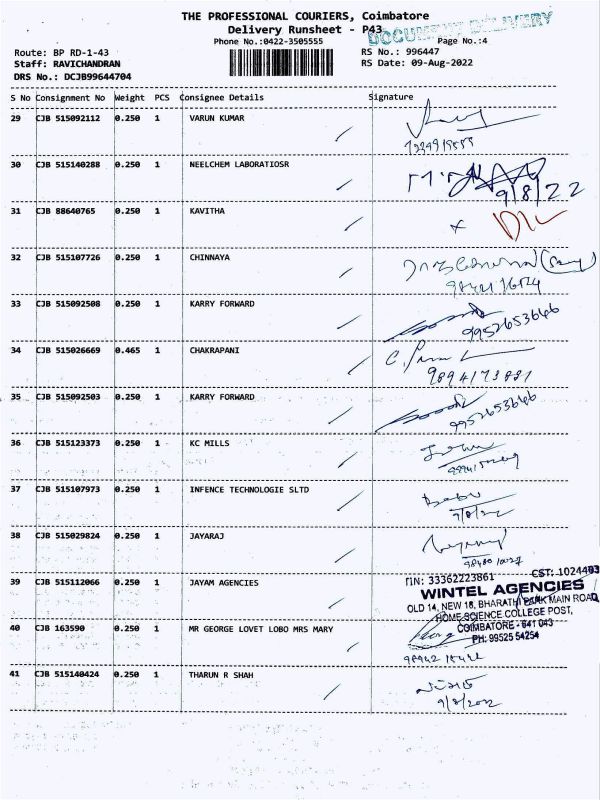 THE PROFESSIONAL COURIERS, Coimbatore
Delivery Runsheet - P43
DOCUMENT DELIVERY
Phone No.:0422-3505555
Page No.:4
Route: BP RD-1-43
RS No.: 996447
Staff: RAVICHANDRAN
RS Date: 09-Aug-2022
DRS No.: DCJB99644704
S No Consignment No Weight PCS Consignee Details Signature
29 CJB 515092112 0.250 1 VARUN KUMAR
30 CJB 515140288 0.250 1 NEELCHEM LABORATIOSR
9/8/22
31 CJB 88640765 0.250 1 KAVITHA
32 CJB 515107726 0.250 1 CHINNAYA
33 CJB 515092508 0.250 1 KARRY FORWARD
9952653646
34 CJB 515026669 0.465 1 CHAKRAPANI
9894173881
35 CJB 515092503 0.250 1 KARRY FORWARD
9952653646
36 CJB 515123373 0.250 1 KC MILLS
37 CJB 515107973 0.250 1 INFENCE TECHNOLOGIE SLTD
Babu
9/8/22
38 CJB 515029824 0.250 1 JAYARAJ
39 CJB 515112066 0.250 1 JAYAM AGENCIES
TIN: 33362223861 CST: 1024493
WINTEL AGENCIES
OLD 14, NEW 18, BHARATHI PARK MAIN ROAD
HOME SCIENCE COLLEGE POST,
COIMBATORE - 641 043
PH: 99525 54254
40 CJB 163590 0.250 1 MR GEORGE LOVET LOBO MRS MARY
41 CJB 515140424 0.250 1 THARUN R SHAH
9/8/2022